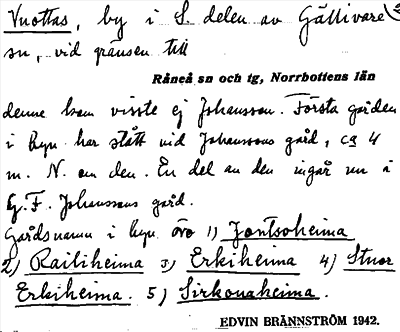 Vuottas, by i S. delen av Gällivare
sn, vid gränsen till
Råneå sn och tg, Norrbottens län
denne kom visste ej Johansson. Första gården
i byn har stått vid Johanssons gård, ca 4
m. N. om den. En del av den ingår nu i
G. F. Johanssons gård.
Gårdsnamn i byn äro 1) Jontsoheima
2) Railiheima 3) Erkiheima 4) Stuor
Erkiheima. 5) Sirkonaheima.
EDVIN BRÄNNSTRÖM 1942.